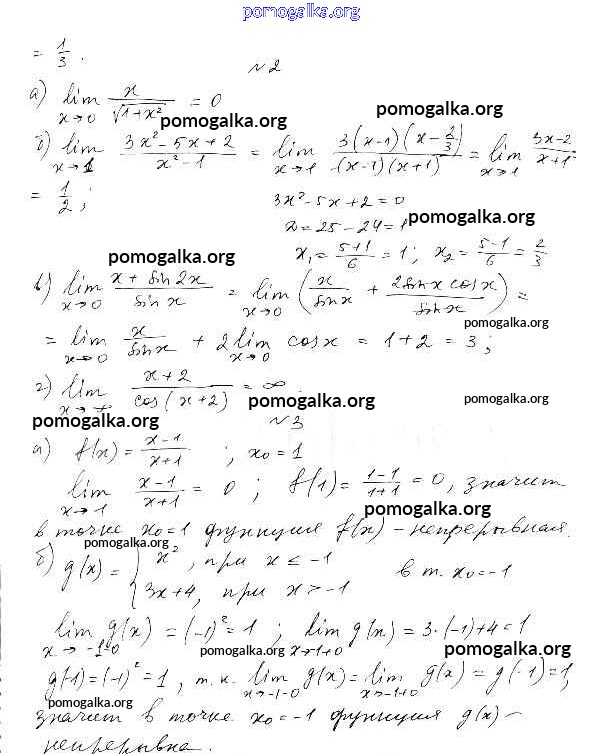 pomogalka.org
= 1/3.
N2
а) lim x→0 x/√(1+x²) = 0
pomogalka.org
pomogalka.org
б) lim x→1 (3x²-5x+2)/(x²-1) = lim x→1 3(x-1)(x-2/3)/((x-1)(x+1)) = lim x→1 (3x-2)/(x+1)
= 1/2; 3x²-5x+2=0
D=25-24=1
pomogalka.org
x₁=(5+1)/6=1; x₂=(5-1)/6=2/3
pomogalka.org
в) lim x→0 (x+sin2x)/sinx = lim x→0 (x/sinx + 2sinxcosx/sinx) =
pomogalka.org
pomogalka.org
= lim x→0 x/sinx + 2 lim x→0 cosx = 1+2=3;
г) lim (x+2)/cos(x+2) = ∞
pomogalka.org
pomogalka.org
pomogalka.org
N3
а) f(x)=(x-1)/(x+1); x₀=1
lim x→1 (x-1)/(x+1) = 0; f(1)=(1-1)/(1+1)=0, значит
pomogalka.org
в точке x₀=1 функция f(x)-непрерывная.
pomogalka.org
б) g(x)={x², при x≤-1
3x+4, при x>-1 в т. x₀=-1
pomogalka.org
lim x→-1-0 g(x)=(-1)²=1; lim x→-1+0 g(x)=3·(-1)+4=1
pomogalka.org
pomogalka.org
g(-1)=(-1)²=1, т.к. lim x→-1-0 g(x)=lim x→-1+0 g(x)=g(-1)=1,
pomogalka.org
значит в точке x₀=-1 функция g(x)-
непрерывна.